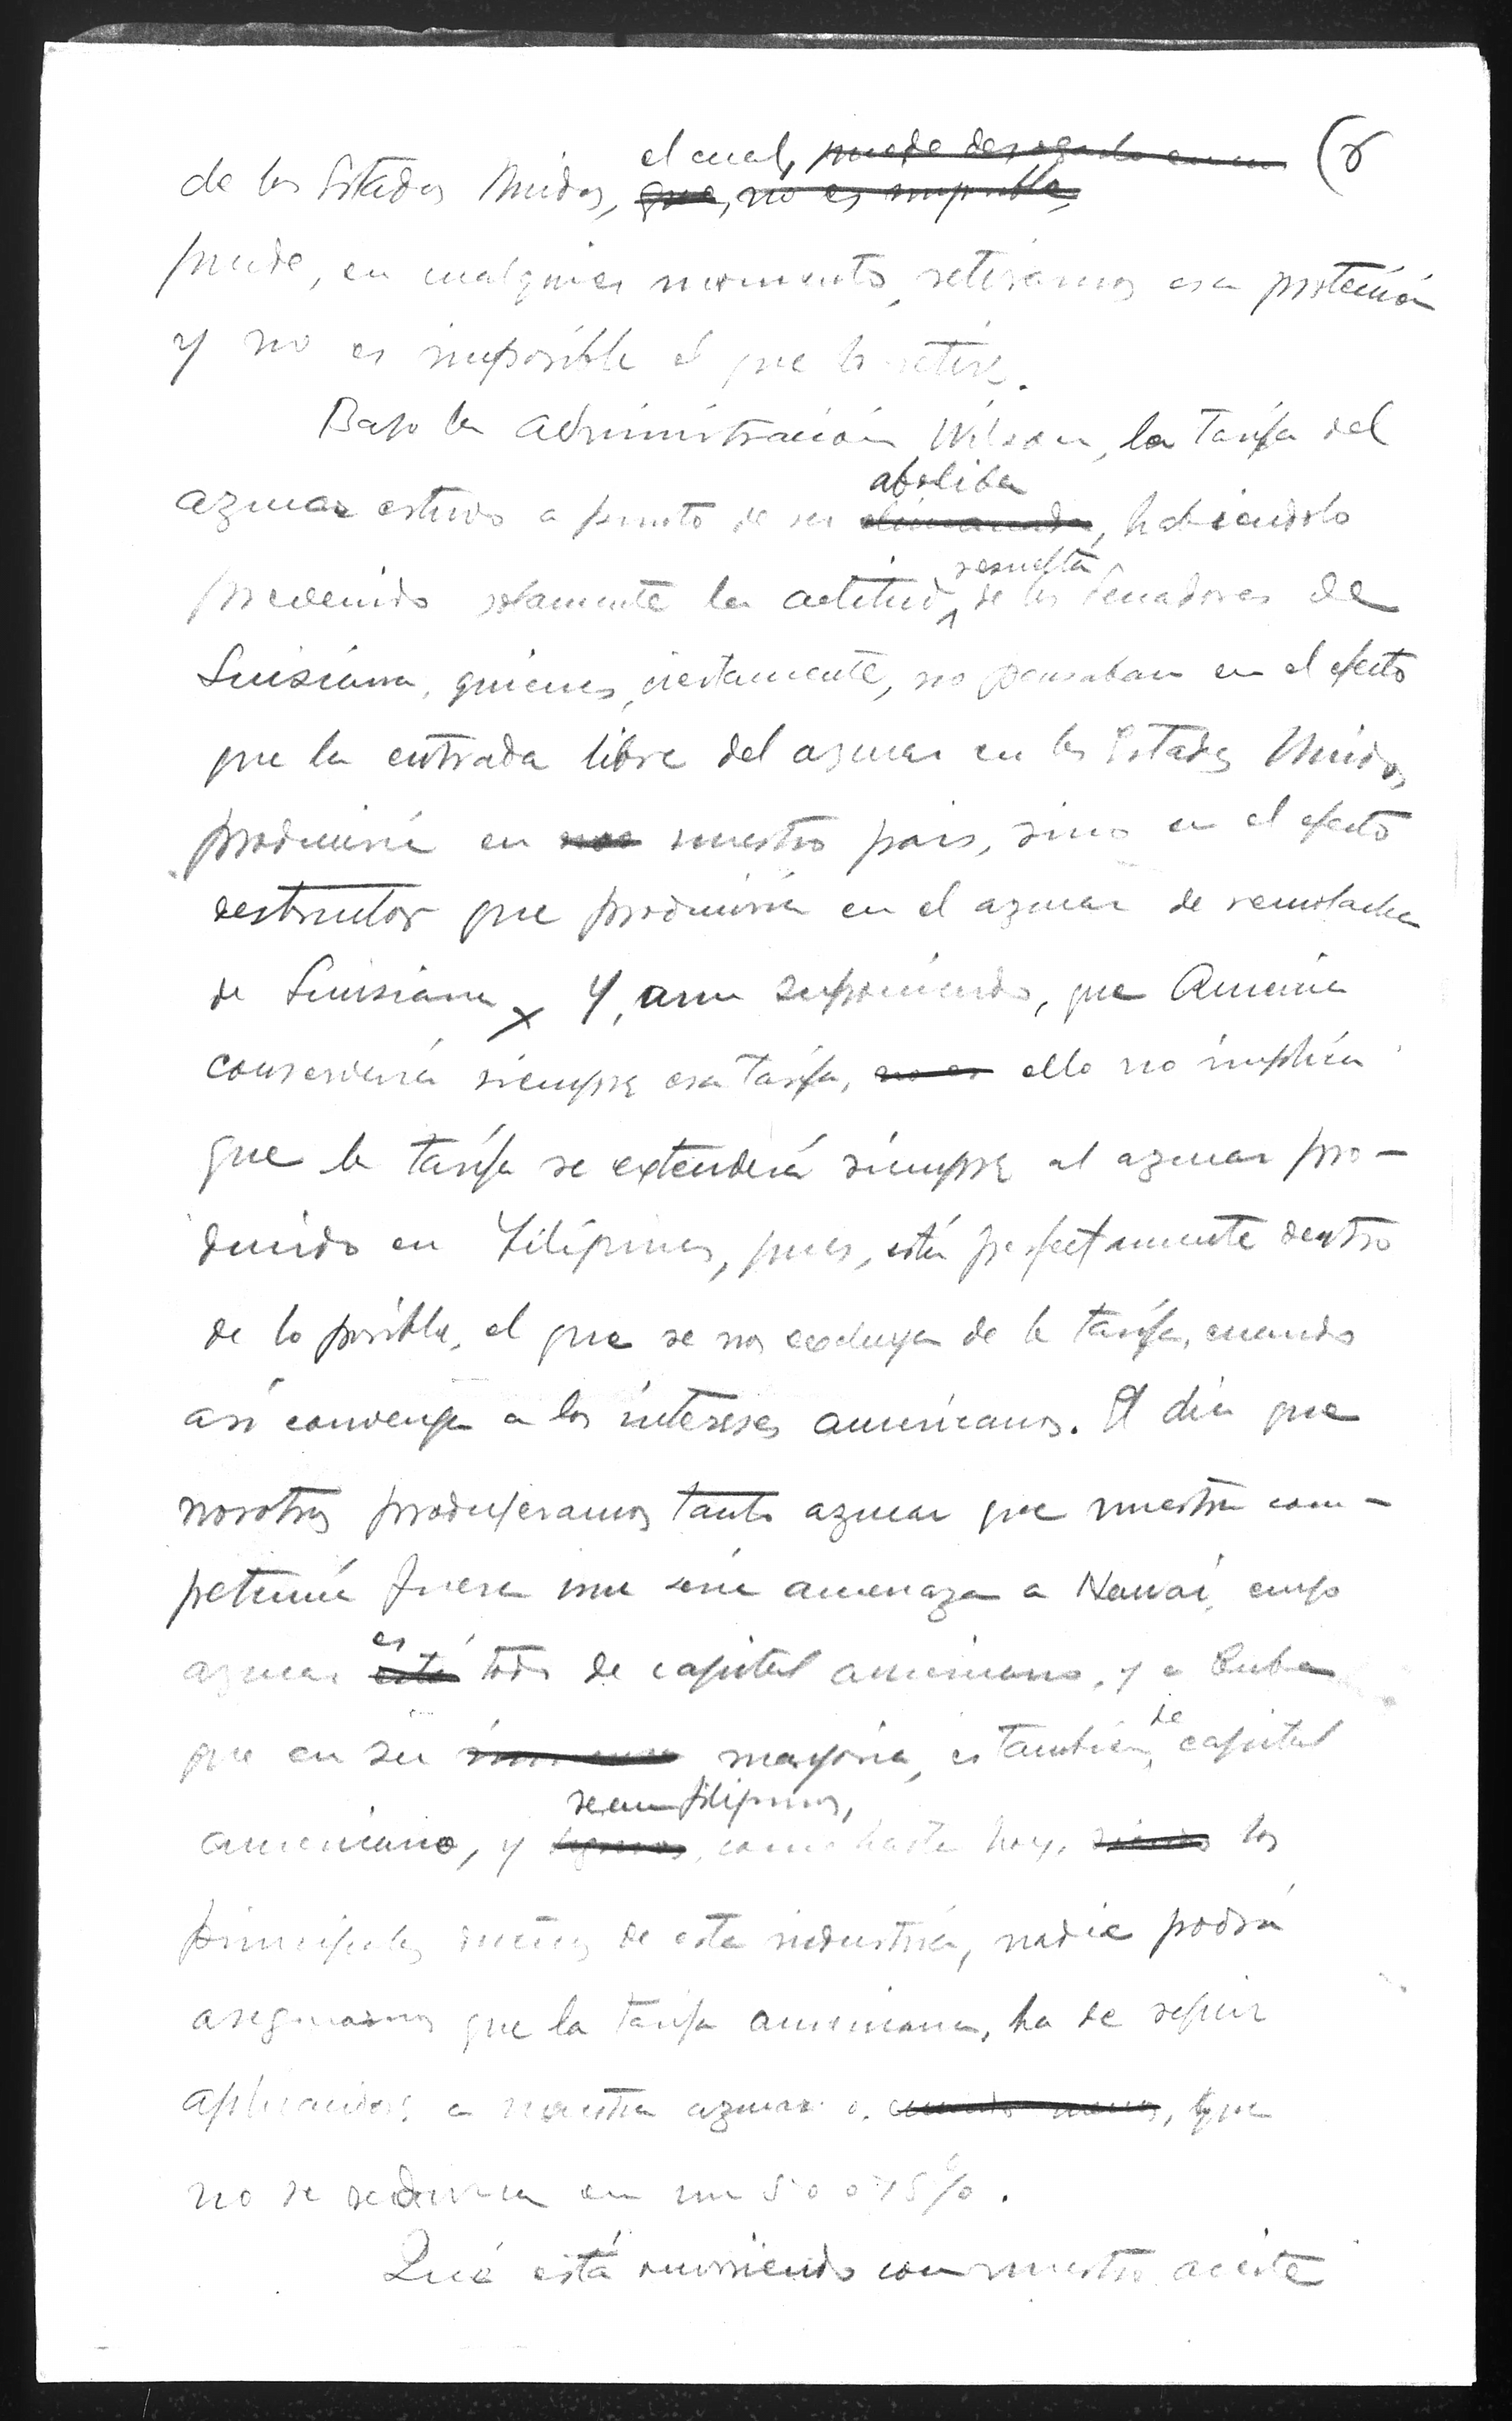 el cual, puede derogarlo en un (8
de los Estados Unidos, que, no es imposible,
puede, en cualquier momento, retirarnos esa protección
y no es imposible el que la retire.
Bajo la administración Wilson, la tarifa del
abolida
azucar estuvo a punto de ser eliminada, habiendolo
resuelta
prevenido solamente la actitud de los Senadores de
Luisiana, quienes, ciertamente, no pensaban en el efecto
que la entrada libre del azucar en los Estados Unidos
produciria en nos nuestro pais, sino en el efecto
destructor que produciria en el azucar de remolacha
de Luisiana x Y, aun suponiendo, que America
conservará siempre esa tarifa, no es ello no implica
que la tarifa se extenderá siempre al azucar pro-
ducido en Filipinas, pues, está perfectamente dentro
de lo posible, el que se nos excluya de la tarifa, cuando
asi convenga a los intereses americanos. El dia que
nosotros produjeramos tanto azucar que nuestra com-
petencia fuera una seria amenaza a Hawai, cuyo
es
azucar está todo de capital americano, y a Cuba
de
que en su mayoria, es también, capital
sean filipinos,
americano, y , como hasta hoy, siendo los
principales dueños de esta industria, nadie podrá
asegurarnos que la tarifa americana, ha de seguir
aplicandose a nuestra azucar o, cuando menos, que
no se reduzca en un 50 o 75%.
Qué está ocurriendo con nuestro aceite